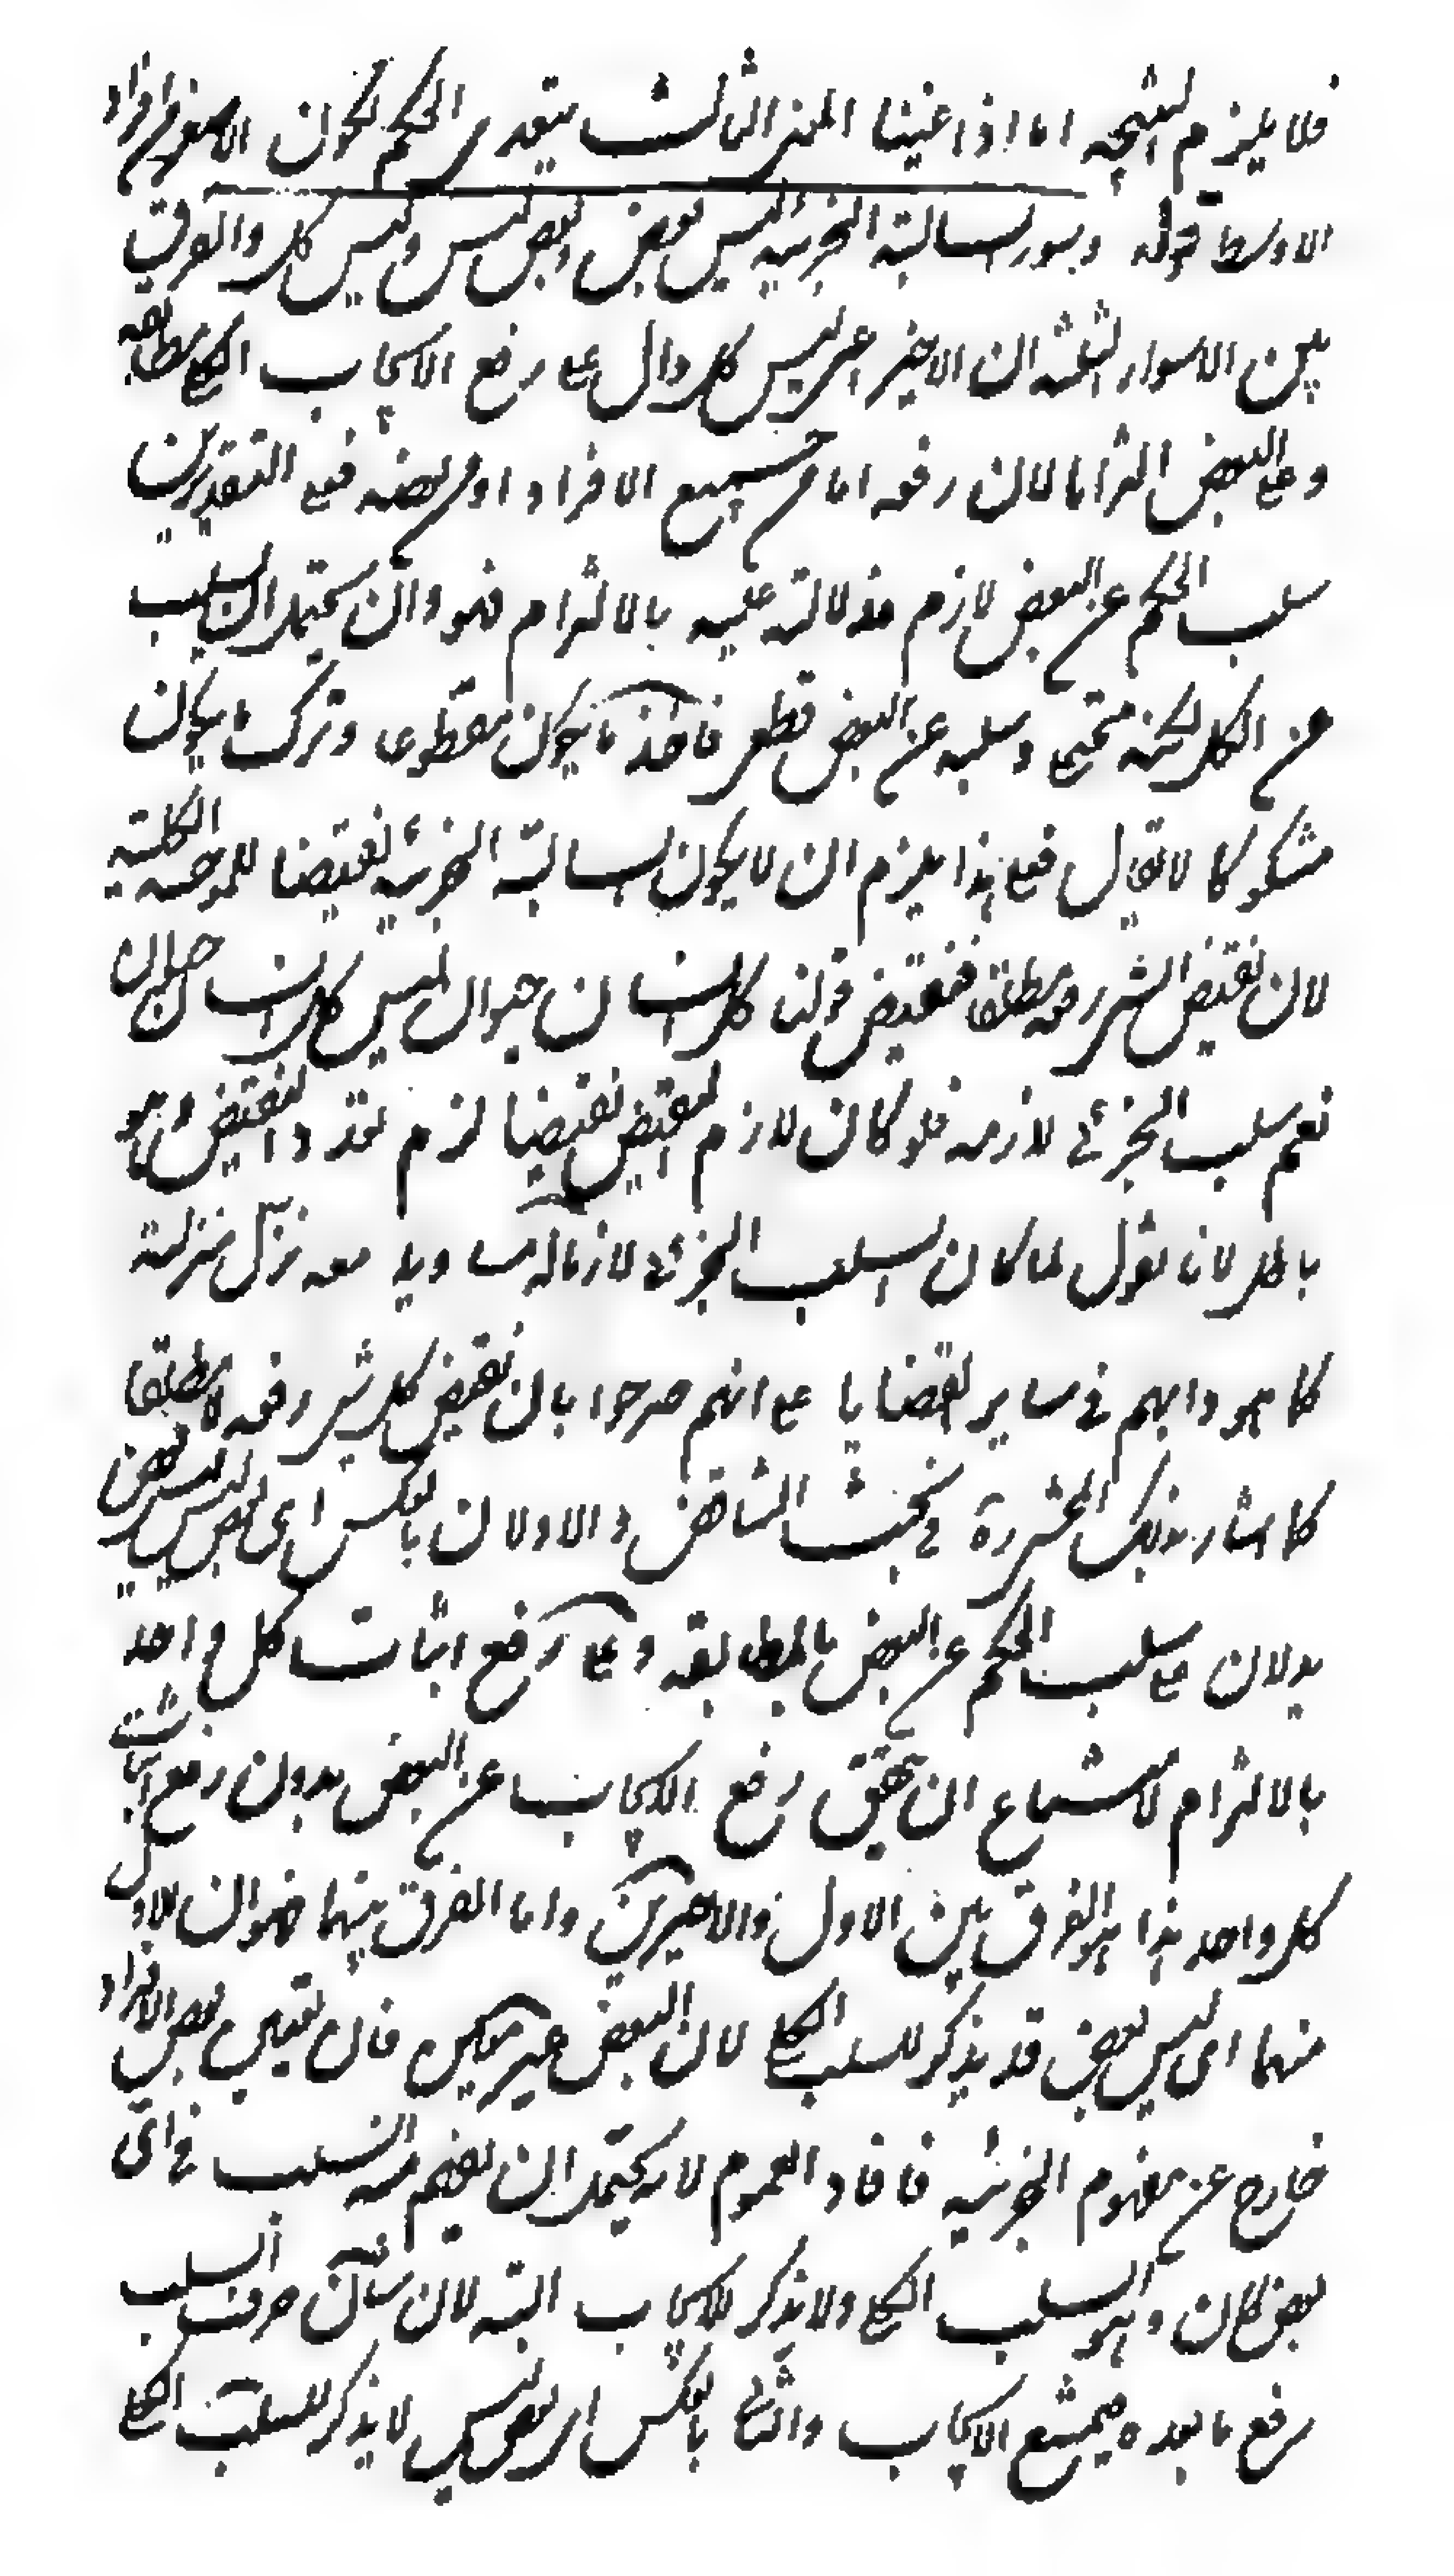 فلا يلزم النتيجه اما اذا عنينا المعنى الثالث يتعدى الحكم لكون الاصغر من افراد
الاوسط قوله وسور السالبة الجزئيه ليس بعض وبعض ليس وليس كل والفرق
بين الاسوار الثلثه ان الاخير اعنى ليس كل دال على رفع الايجاب الكلى مطابقه
وعلى البعض التزاما لان رفعه اما من جميع الافراد او من بعضه فعلى التقديرين
سلب الحكم عن البعض لازم فدلالته عليه بالالتزام فهو وان يحتمل ان السلب
عن الكل لكنه محتمل وسلبه عن البعض قطعى فاخذ ما يكون مقطوعى وترك ما يكون
مشكوكا لا يقال فعلى هذا يلزم ان لا يكون السالبة الجزئيه نقيضا للموجبه الكليه
لان نقيض الشى رفعه مطلقا فنقيض قولنا كل انسان حيوان ليس كل انسان حيوان
نعم سلب الجزئى لازمه فلو كان لازم النقيض نقيضا لزم تعدد النقيض وهو
باطل لانا نقول لما كان السلب الجزئى لازما له مساويا معه نزل منزلته
كما هو دابهم فى ساير القضايا على انهم صرحوا بان نقيض كل شى رفعه مطلقا
كما اشار بذلك المحشى ره فى بحث التناقض والاولان بالعكس اى بعض ليس وليس بعض
يدلان على سلب الحكم عن البعض بالمطابقه وعلى رفع اثبات كل واحد
بالالتزام لامتناع ان تحقق رفع الايجاب عن البعض بدون رفع اثبات
كل واحد هذا هو الفرق بين الاول والاخيرين واما الفرق بينهما فهو ان الاول
منهما اى ليس بعض قد يذكر للسلب الكلى لان البعض غير معين فان تعيين بعض الافراد
خارج عن مفهوم الجزئيه فافاد العموم لانه يحتمل ان يفهم منه السلب فى اى
بعض كان وهو السلب الكلى ولا يذكر للايجاب البته لان شان حرف السلب
رفع ما بعده فيمتنع الايجاب والثانى بالعكس اى بعض ليس لا يذكر للسلب الكلى